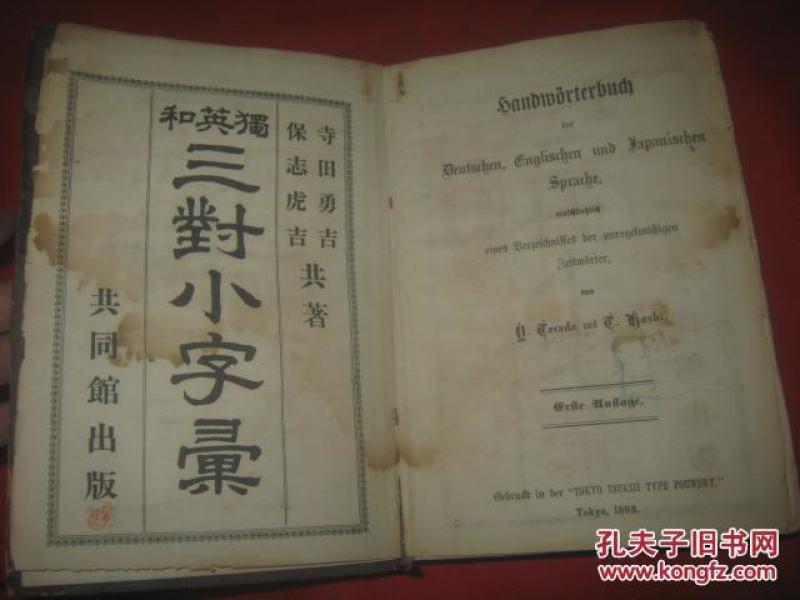 獨英和
三對小字彙
寺田勇吉
保志虎吉
共著
共同館出版
Handwörterbuch
der
Deutschen, Englischen und Japanischen
Sprache,
einschließlich
eines Verzeichnisses der unregelmäßigen
Zeitwörter,
von
Y. Terada und T. Hoshi.
Erste Auflage.
Gedruckt in der "TOKYO TSUKIJI TYPE FOUNDRY."
Tokyo, 1893.
孔夫子旧书网
www.kongfz.com